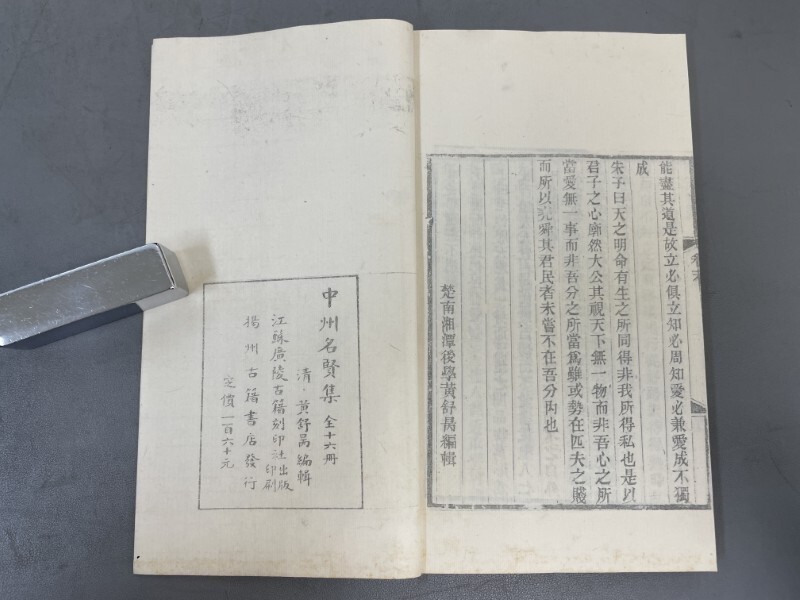 能盡其道是故立必俱立知必周知愛必兼愛成不獨
成
朱子曰天之明命有生之所同得非我所得私也是以
君子之心廓然大公其視天下無一物而非吾心之所
當愛無一事而非吾分之所當為雖或勢在匹夫之賤
而所以堯舜其君民者未嘗不在吾分內也
楚南湘潭後學黃舒昺編輯
卷末
中州名賢集 全十六冊
清·黃舒昺編輯
江蘇廣陵古籍刻印社出版印刷
揚州古籍書店發行
定價一百六十元